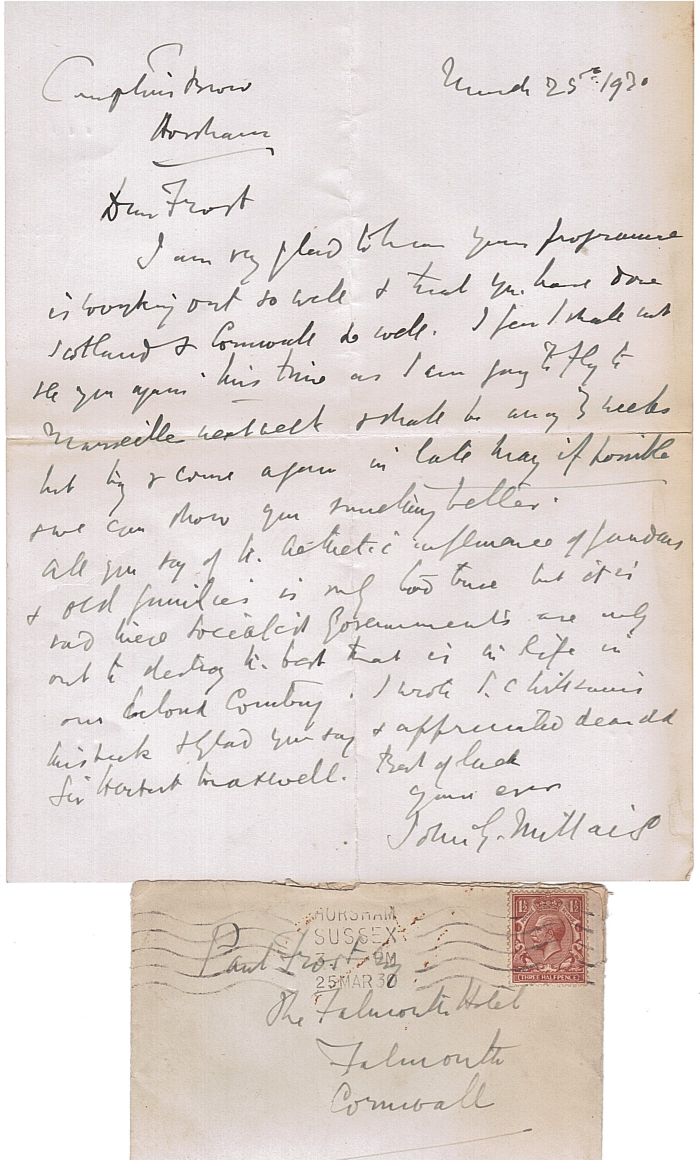 Comptons Brow
March 25th 1930
Horsham
Dear Frost
I am very glad to hear your programme
is working out so well & that you have done
Scotland & Cornwall so well. I fear I shall not
see you again this time as I am going to fly to
Marseille next week & shall be away 3 weeks
but try & come again in late May if possible
& we can show you something better.
All you say of the Aesthetic influence of gardens
& old families is only too true but it is
sad these Socialist Governments are only
out to destroy the best that is in life in
our beloved Country. I wrote S. C
this week & glad you say & appreciated dear old
Sir Herbert Maxwell. Best of luck
yours ever
John G. Millais
HORSHAM
SUSSEX
PM
25 MAR 30
1½ 1½
THREE HALFPENCE
Paul Frost Esq
The Falmouth Hotel
Falmouth
Cornwall